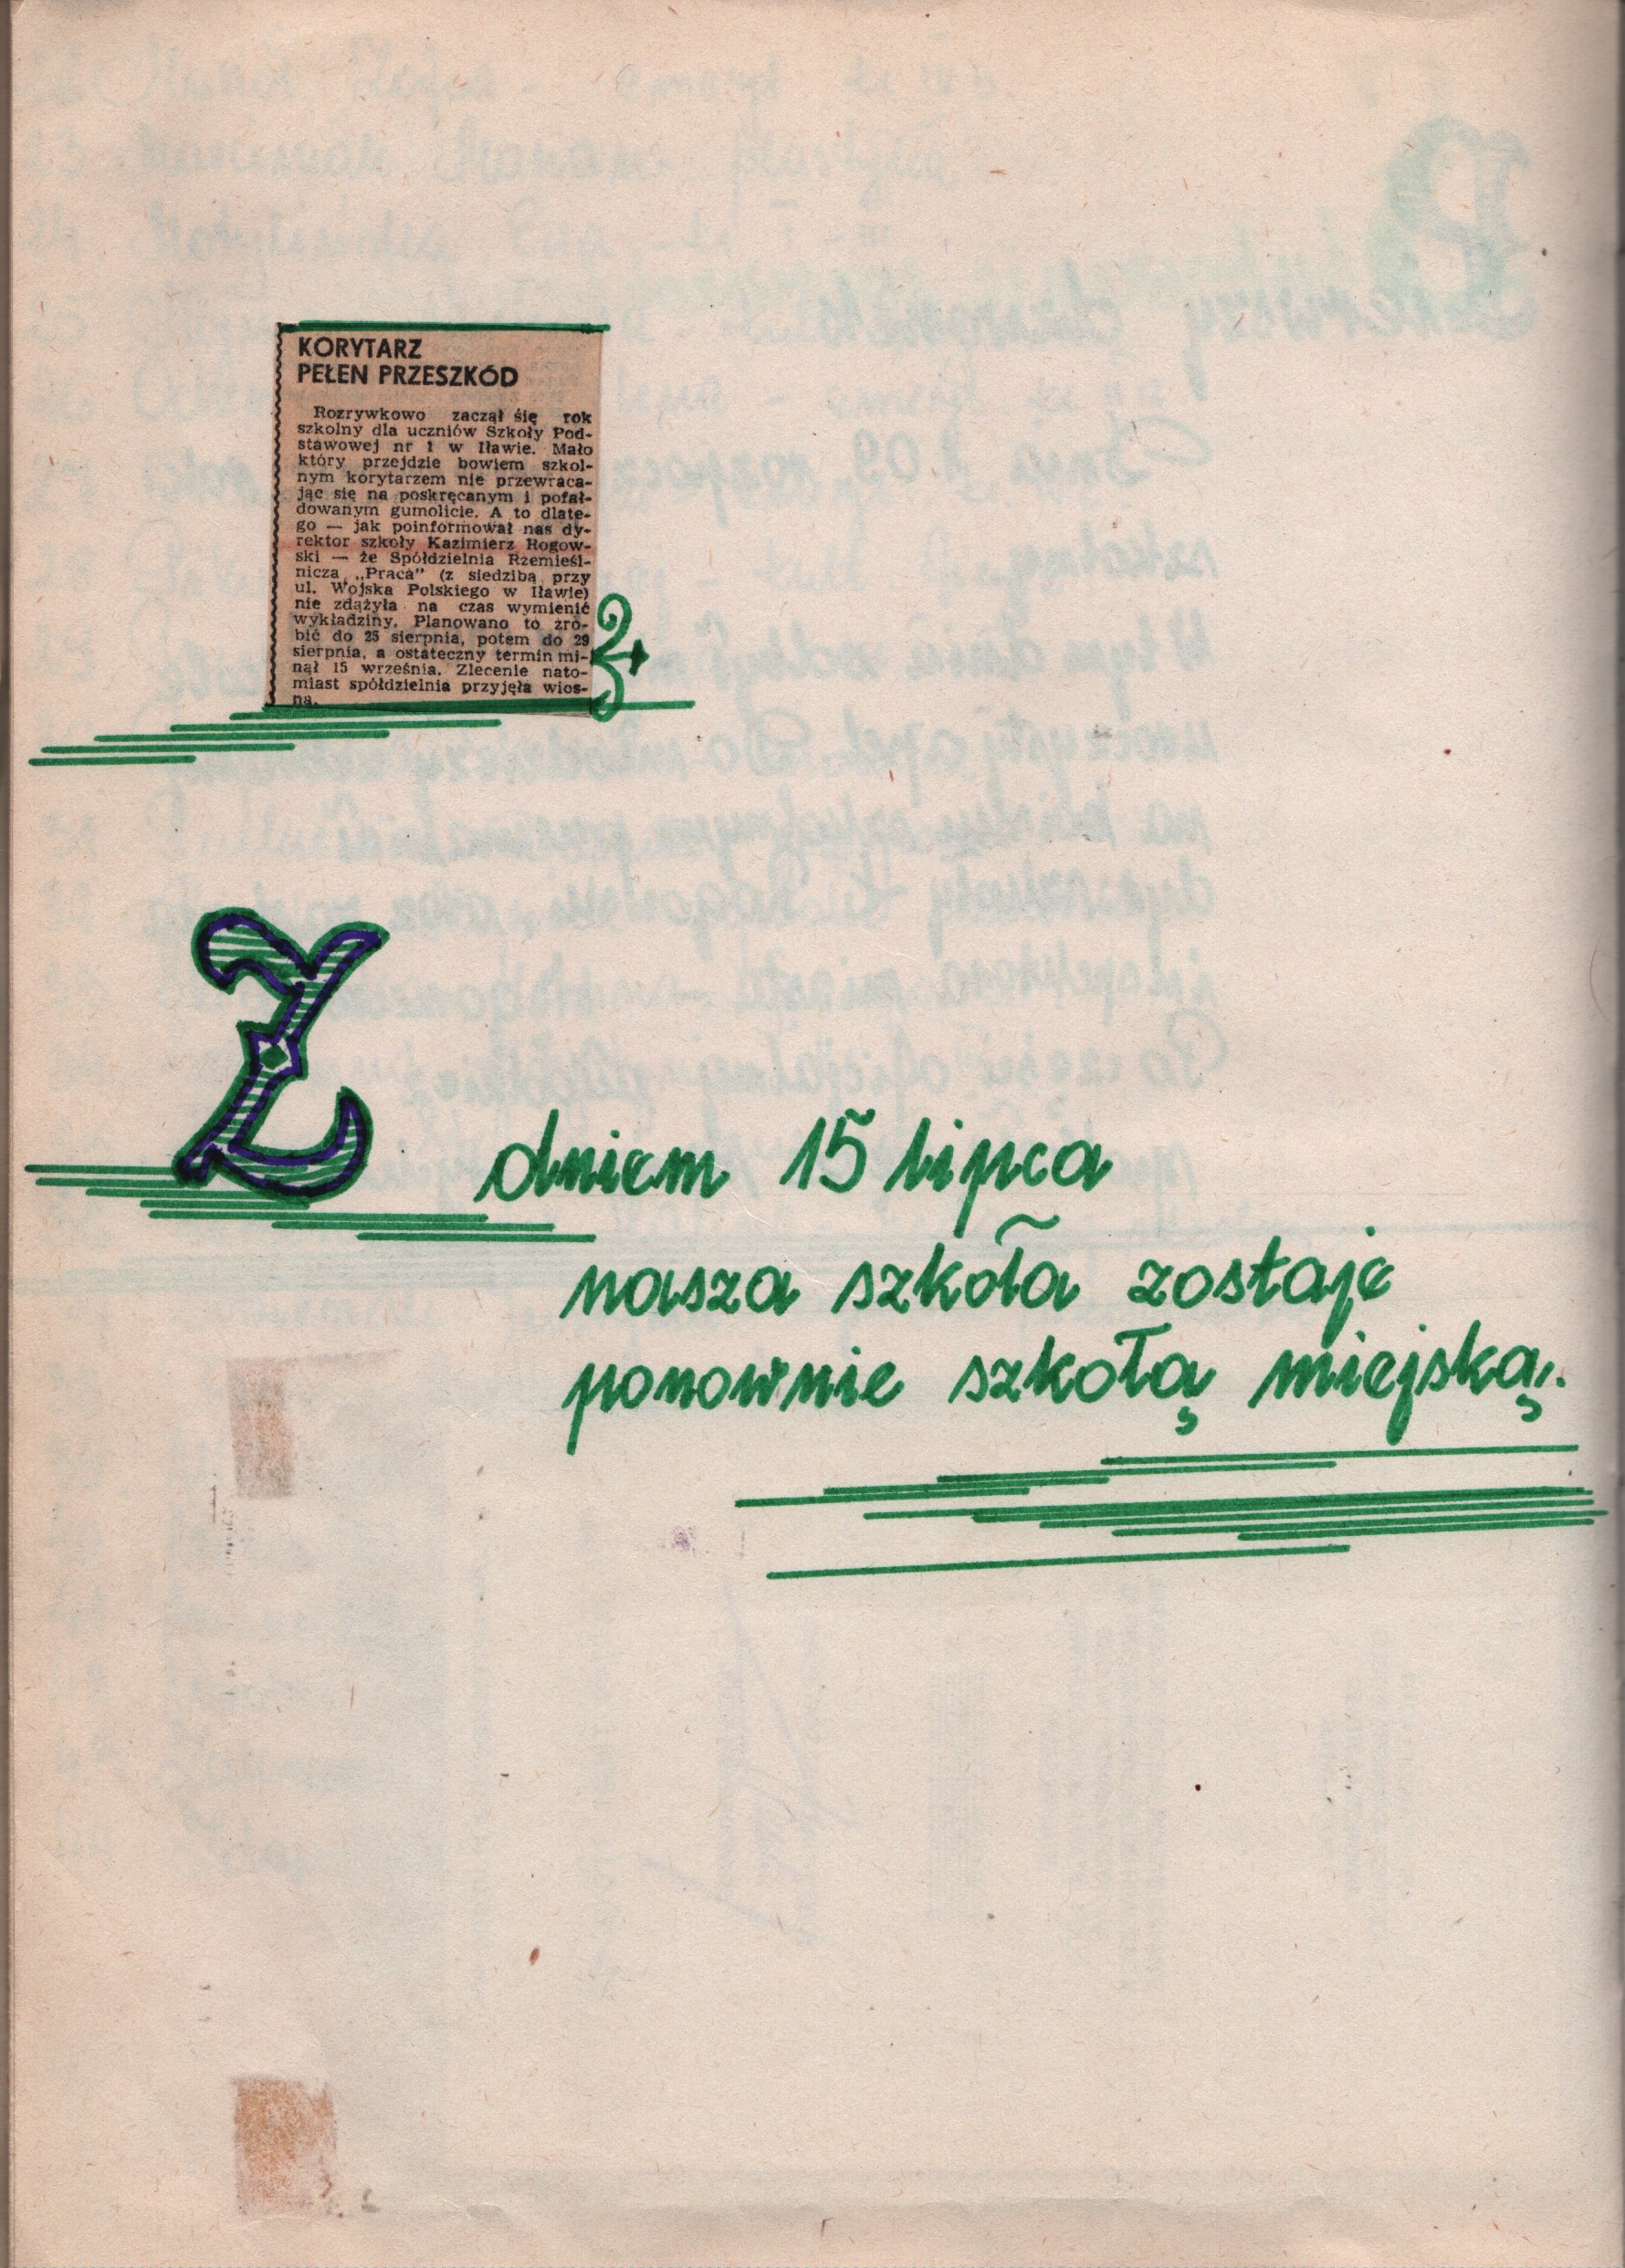 KORYTARZ
PEŁEN PRZESZKÓD
Rozrywkowo zaczął się rok
szkolny dla uczniów Szkoły Pod-
stawowej nr 1 w Iławie. Mało
który przejdzie bowiem szkol-
nym korytarzem nie przewraca-
jąc się na poskręcanym i pofał-
dowanym gumolicie. A to dlate-
go — jak poinformował nas dy-
rektor szkoły Kazimierz Rogow-
ski — że Spółdzielnia Rzemieśl-
nicza „Praca” (z siedzibą przy
ul. Wojska Polskiego w Iławie)
nie zdążyła na czas wymienić
wykładziny. Planowano to zro-
bić do 25 sierpnia, potem do 29
sierpnia, a ostateczny termin mi-
nął 15 września. Zlecenie nato-
miast spółdzielnia przyjęła wios-
ną.
Z dniem 15 lipca
nasza szkoła zostaje
ponownie szkołą miejską.